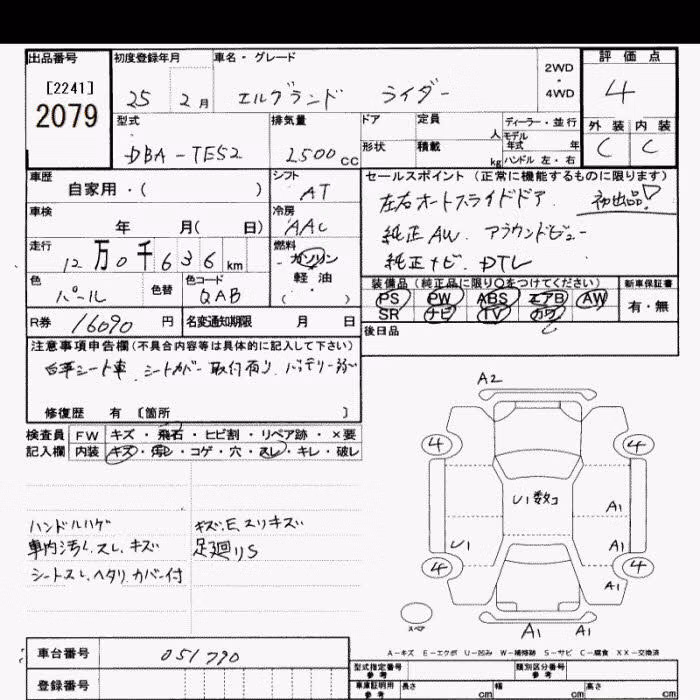 出品番号
[2241]
2079
初度登録年月
25 2月
車名・グレード
エルグランド ライダー
2WD
・
4WD
評価点
4
外装 内装
C C
型式
DBA-TE52
排気量
2500cc
ドア
形状
定員
人
積載
kg
ディーラー・並行
モデル
年式 年
ハンドル 左・右
車歴
自家用・( )
シフト
AT
車検
年 月( 日)
冷房
AAC
走行
12万0千636km
燃料
ガソリン
軽油
( )
色
パール
色替
色コード
QAB
R券
16090円
名変通知期限 月 日
セールスポイント(正常に機能するものに限ります)
左右オートスライドドア. 初出品!
純正AW. アラウンドビュー
純正ナビ. DTV
装備品(純正品に限り○をつけてください)
PS PW ABS エアB AW
SR ナビ TV カワ
新車保証書
有・無
後日品
注意事項申告欄(不具合内容等は具体的に記入して下さい)
シートカバー取付有り. バッテリー
修復歴 有 〔箇所 〕
検査員
記入欄
FW キズ・飛石・ヒビ割・リペア跡・×要
内装 キズ・汚レ・コゲ・穴・スレ・キレ・破レ
ハンドルハゲ
車内汚レ.スレ.キズ
シートスレ.ヘタリ.カバー付
キズ.E.スリキズ
足廻りS
A2
4 4
U1数コ
A1
U1
A1
4 4
A1
スペア
A1 A1
A-キズ E-エクボ U-凹み W-補修跡 S-サビ C-腐食 XX-交換済
車台番号
051790
登録番号
型式指定番号
参考
類別区分番号
参考
車庫証明用
参考
長さ cm
幅 cm
高さ cm